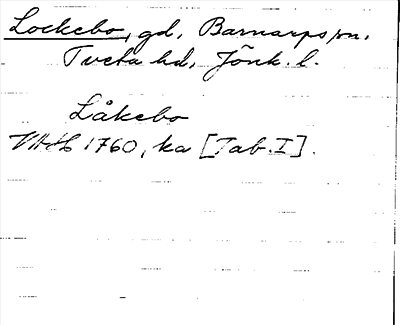 Lockebo, gd, Barnarps sn.
Tveta hd, Jönk. l.
Låkebo
1760, ka [Tab. I].